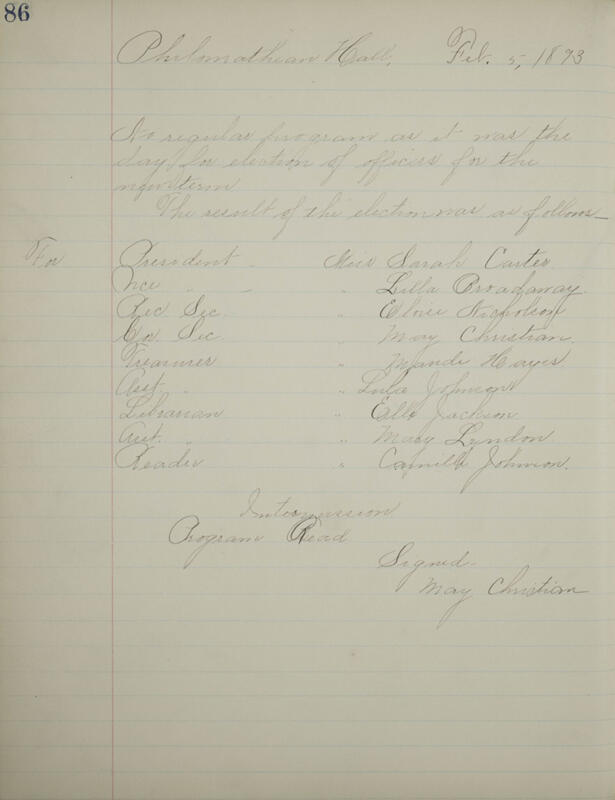 86
Philomathian Hall, Feb. 5, 1893
No regular program as it was the
day for election of officers for the
new term
The result of the election was as follows—
For President " Miss Sarah Carter
Vice " " " Lilla Broadaway
Rec Sec. " Eloise Nicholson
Cor Sec " May Christian
Treasurer " Maude Hayes
Asst. " " Lula Johnson
Librarian " Jackson
Asst. " " Mary Lyndon
Reader " Camille Johnson.
Intermission
Program Read
Signed-
May Christian